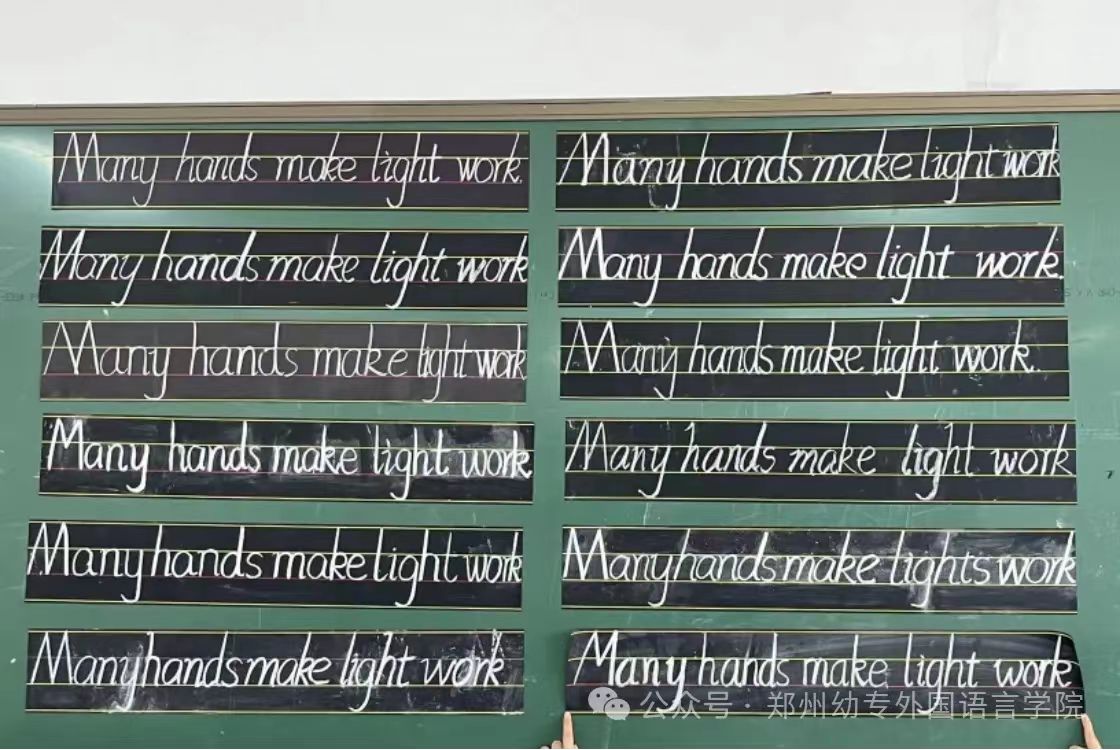 Many hands make light work.
Many hands make light work
Many hands make light work
Many hands make light work.
Many hands make light work
Many hands make light work.
Many hands make light work
Many hands make light work
Many hands make light work
Many hands make lights work
Many hands make light work
Many hands make light work
公众号·郑州幼专外国语言学院